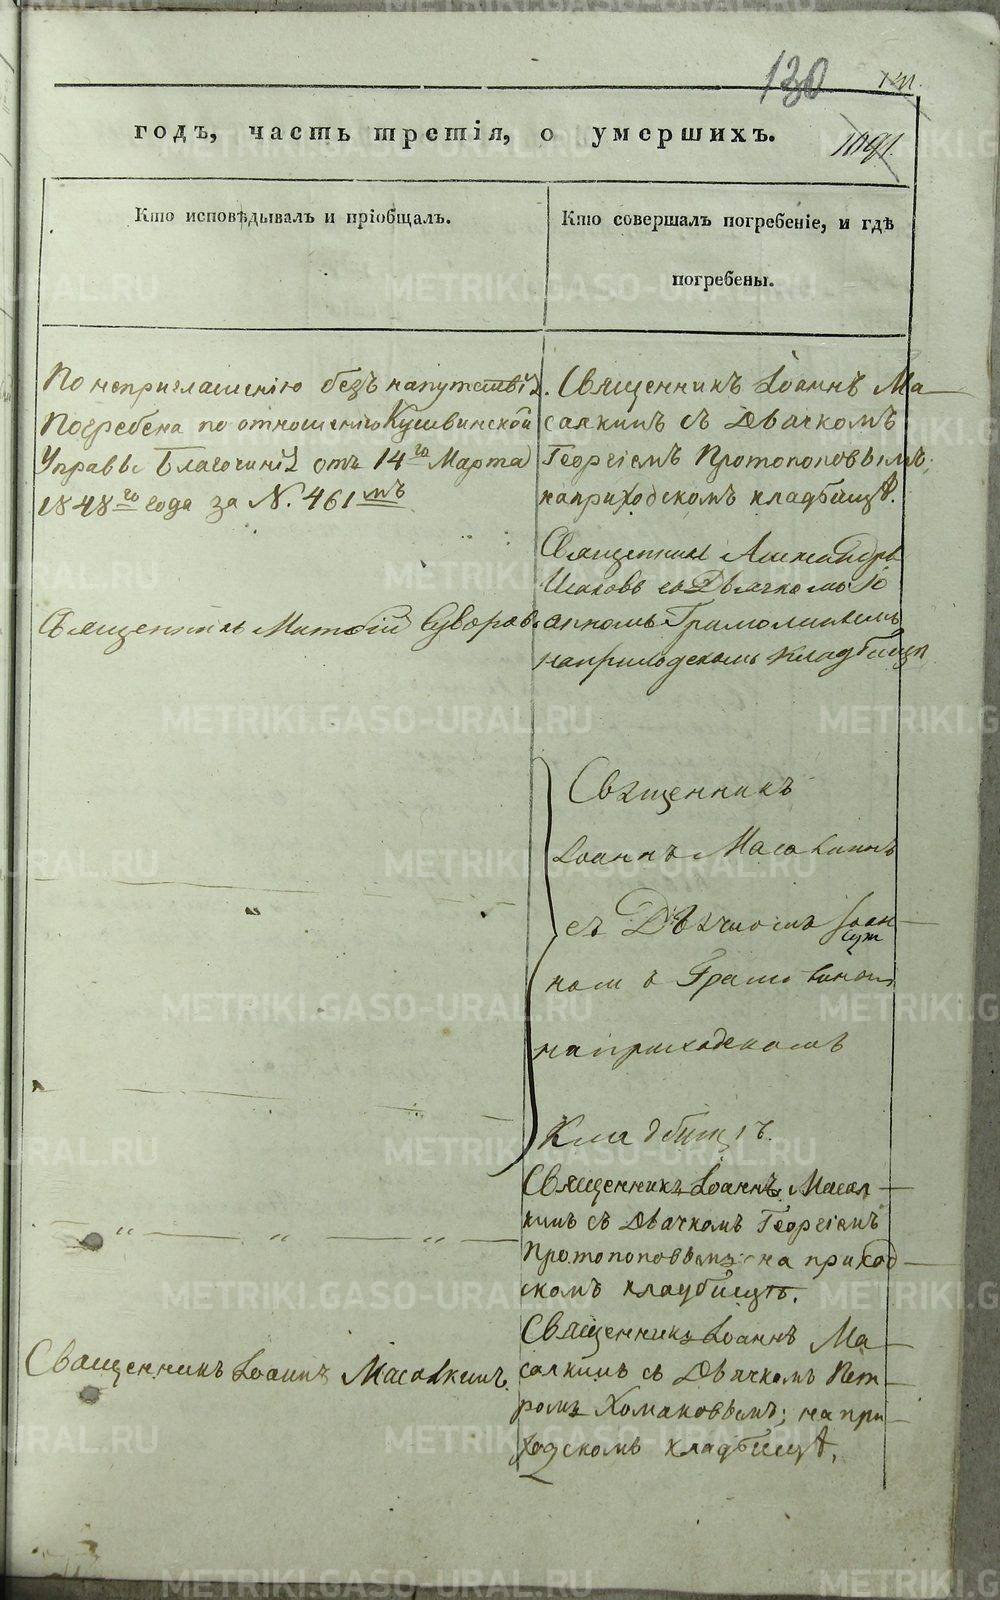 130
1091.
годъ, часть третія, о умершихъ.
Кто исповѣдывалъ и пріобщалъ.
Кто совершалъ погребеніе, и гдѣ
погребены.
По неприглашенію безъ напутствія.
Погребена по отношенію Кушвинской
Управы Благочинія отъ 14го Марта
1848го года за N. 461мъ
Священникъ Іоаннъ Ма
салкинъ съ Дьячкомъ
Георгіемъ Протопоповымъ;
на приходскомъ кладбищѣ.
Священникъ Матѳій Суворовъ
Священникъ Александръ
Исаковъ съ Дьячкомъ Іо
анномъ Грамолинымъ
на приходскомъ Кладбищѣ
Священникъ
Іоаннъ Масалкинъ
съ Дьячкомъ Іоан
номъ
на приходскомъ
Кладбищѣ.
Священникъ Іоаннъ Масал
кинъ съ Дьячкомъ Георгіемъ
Протопоповымъ на приход
скомъ кладбищѣ.
Священникъ Іоаннъ Масалкинъ.
Священникъ Іоаннъ Ма
салкинъ съ Дьячкомъ Пет
ромъ Хомяковымъ; на при
ходскомъ кладбищѣ.
METRIKI.GASO-URAL.RU